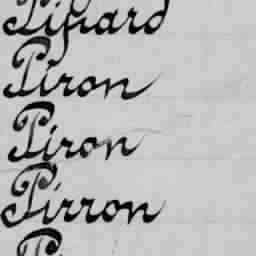 Piron
Piron
Pirron